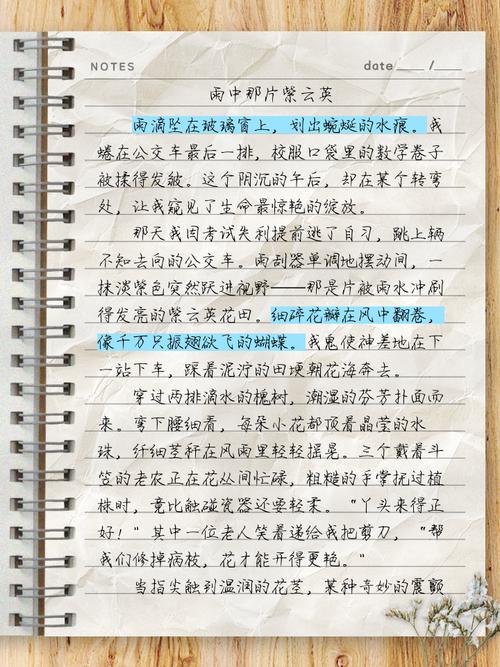 NOTES
date ____ / ____
雨中那片紫云英
雨滴坠在玻璃窗上，划出蜿蜒的水痕。我
蜷在公交车最后一排，校服口袋里的数学卷子
被揉得发皱。这个阴沉的午后，却在某个转弯
处，让我窥见了生命最惊艳的绽放。
那天我因考试失利提前逃了自习，跳上辆
不知去向的公交车。雨刮器单调地摆动间，一
抹淡紫色突然跃进视野——那是片被雨水冲刷
得发亮的紫云英花田。细碎花瓣在风中翻卷，
像千万只振翅欲飞的蝴蝶。我鬼使神差地在下
一站下车，踩着泥泞的田埂朝花海奔去。
穿过两排滴水的槐树，潮湿的芬芳扑面而
来。弯下腰细看，每朵小花都顶着晶莹的水
珠，纤细茎秆在风雨里轻轻摇晃。三个戴着斗
笠的老农正在花丛间忙碌，粗糙的手掌抚过植
株时，竟比触碰瓷器还要轻柔。“丫头来得正
好！”其中一位老人笑着递给我把剪刀，“帮
我们修掉病枝，花才能开得更艳。”
当指尖触到温润的花茎，某种奇妙的震颤